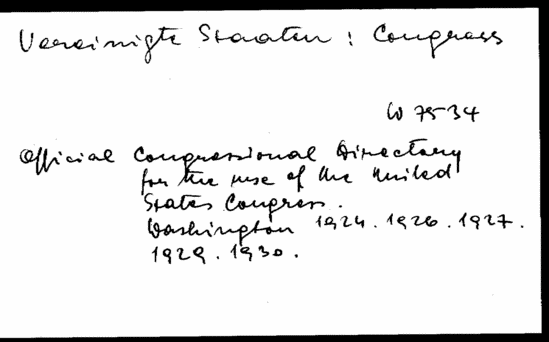 Vereinigte Staaten : Congress
W 7534
Official Congressional Directory
for the use of the United
States Congress.
Washington 1924. 1926. 1927.
1929. 1930.